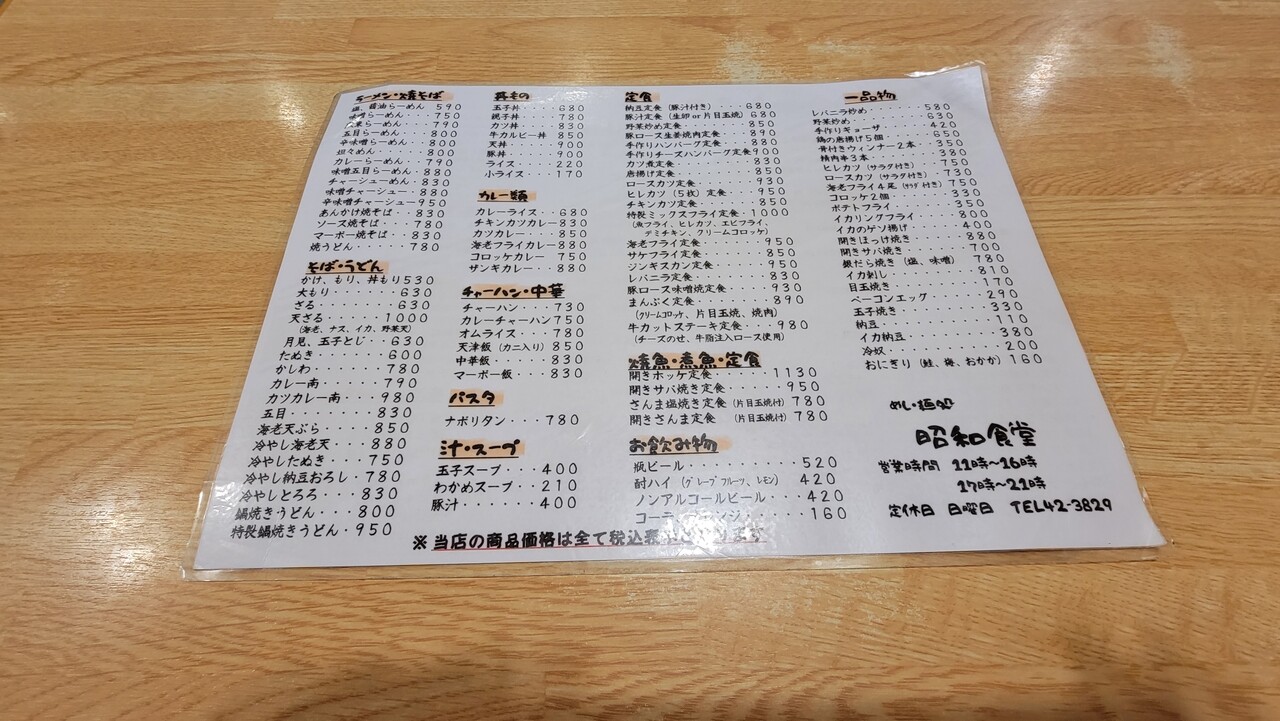 ラーメン・焼そば
塩、醤油らーめん 590
味噌らーめん・・・750
らーめん・・790
五目らーめん・・・800
辛味噌らーめん・・800
坦々めん・・・・・800
カレーらーめん・・790
味噌五目らーめん・880
チャーシューめん・830
味噌チャーシュー・880
辛味噌チャーシュー950
あんかけ焼そば・・830
ソース焼そば・・・780
マーボー焼そば・・830
焼うどん・・・・・780
そば・うどん
かけ、もり、丼もり530
大もり・・・・・・・630
ざる・・・・・・・・630
天ざる・・・・・・1000
(海老、ナス、イカ、野菜天)
月見、玉子とじ・・630
たぬき・・・・・・600
かしわ・・・・・・780
カレー南・・・・・790
カツカレー南・・・980
五目・・・・・・・830
海老天ぷら・・・・850
冷やし海老天・・・880
冷やしたぬき・・・750
冷やし納豆おろし・780
冷やしとろろ・・・830
鍋焼きうどん・・・800
特製鍋焼きうどん・950
丼もの
玉子丼・・・・680
親子丼・・・・780
カツ丼・・・・830
牛カルビー丼 850
天丼・・・・・900
豚丼・・・・・900
ライス・・・・220
小ライス・・・170
カレー類
カレーライス・・680
チキンカツカレー830
カツカレー・・・850
海老フライカレー880
コロッケカレー 750
ザンギカレー・・880
チャーハン・中華
チャーハン・・・730
カレーチャーハン750
オムライス・・・780
天津飯(カニ入り)850
中華飯・・・・・830
マーボー飯・・・830
パスタ
ナポリタン・・・780
汁・スープ
玉子スープ・・・400
わかめスープ・・210
豚汁・・・・・・400
定食
納豆定食(豚汁付き)・・・680
豚汁定食(生卵or片目玉焼)680
野菜炒め定食・・・・・・850
豚ロース生姜焼肉定食・・890
手作りハンバーグ定食・・880
手作りチーズハンバーグ定食900
カツ煮定食・・・・・・・830
唐揚げ定食・・・・・・・850
ロースカツ定食・・・・・930
ヒレカツ(5枚)定食・・・950
チキンカツ定食・・・・・850
特製ミックスフライ定食・1000
(魚フライ、ヒレカツ、エビフライ、
デミチキン、クリームコロッケ)
海老フライ定食・・・・・950
サケフライ定食・・・・・850
ジンギスカン定食・・・・950
レバニラ定食・・・・・・830
豚ロース味噌焼定食・・・930
まんぷく定食・・・・・・890
(クリームコロッケ、片目玉焼、焼肉)
牛カットステーキ定食・・・980
(チーズのせ、牛脂注入ロース使用)
焼魚・煮魚・定食
開きホッケ定食・・・・1130
開きサバ焼き定食・・・・950
さんま塩焼き定食(片目玉焼付)780
開きさんま定食 (片目玉焼付)780
お飲み物
瓶ビール・・・・・・・・・520
酎ハイ(グレープフルーツ、レモン) 420
ノンアルコールビール・・・420
160
一品物
レバニラ炒め・・・・・580
野菜炒め・・・・・・・630
手作りギョーザ・・・・420
鶏の唐揚げ5個・・・・650
骨付きウィンナー2本・350
精肉串3本・・・・・・380
ヒレカツ(サラダ付き)・750
ロースカツ(サラダ付き)・730
海老フライ4尾(サラダ付き)750
コロッケ2個・・・・・330
ポテトフライ・・・・・350
イカリングフライ・・・800
イカのゲソ揚げ・・・・400
開きほっけ焼き・・・・880
開きサバ焼き・・・・・700
銀だら焼き(塩、味噌) 780
イカ刺し・・・・・・・810
目玉焼き・・・・・・・170
ベーコンエッグ・・・・290
玉子焼き・・・・・・・330
納豆・・・・・・・・・110
イカ納豆・・・・・・・380
冷奴・・・・・・・・・200
おにぎり(鮭、梅、おかか)160
めし・麺処
昭和食堂
営業時間 11時~16時
17時~21時
定休日 日曜日 TEL42-3829
※当店の商品価格は全て税込表ます